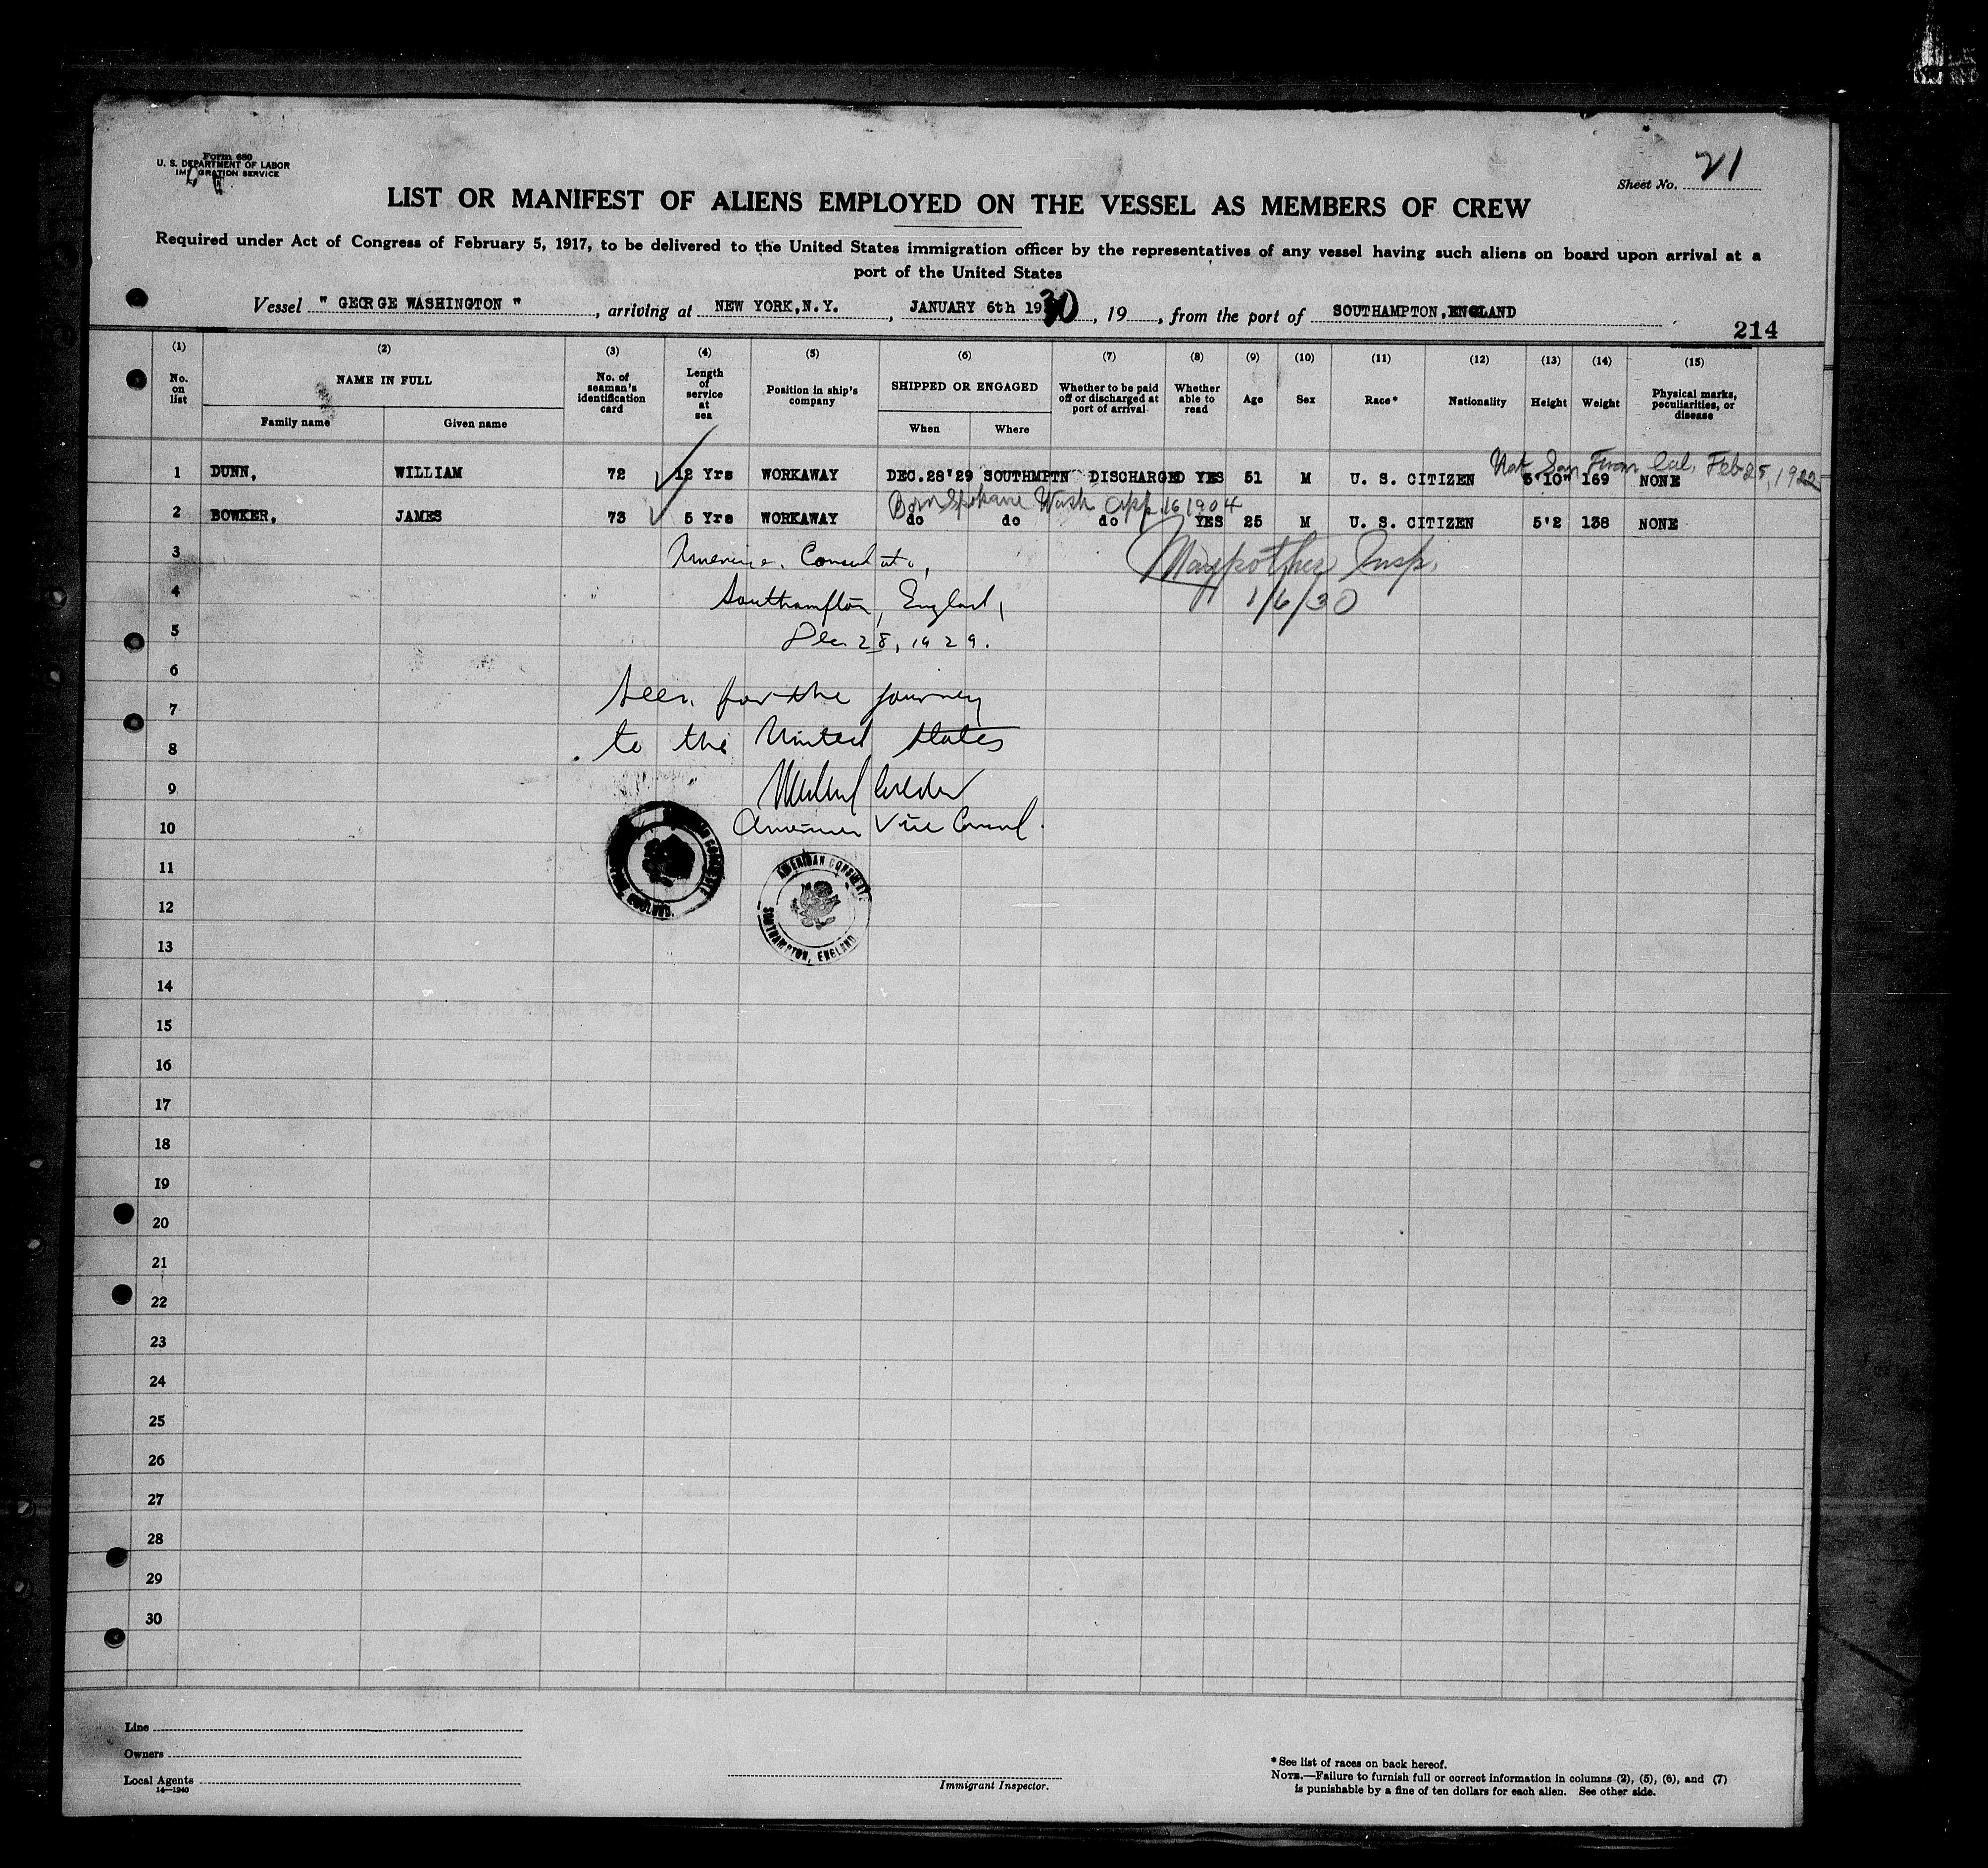 Form 680
U. S. DEPARTMENT OF LABOR
IMMIGRATION SERVICE
Sheet No. 21
LIST OR MANIFEST OF ALIENS EMPLOYED ON THE VESSEL AS MEMBERS OF CREW
Required under Act of Congress of February 5, 1917, to be delivered to the United States immigration officer by the representatives of any vessel having such aliens on board upon arrival at a
port of the United States
Vessel " GEORGE WASHINGTON ", arriving at NEW YORK,N.Y., JANUARY 6th 1930, 19, from the port of SOUTHAMPTON,ENGLAND
214
(1) (2) (3) (4) (5) (6) (7) (8) (9) (10) (11) (12) (13) (14) (15)
No. on list NAME IN FULL No. of seaman's identification card Length of service at sea Position in ship's company SHIPPED OR ENGAGED Whether to be paid off or discharged at port of arrival Whether able to read Age Sex Race* Nationality Height Weight Physical marks, peculiarities, or disease
Family name Given name When Where
Nat San Fran Cal. Feb 25, 1922
1 DUNN, WILLIAM 72 12 Yrs WORKAWAY DEC.28'29 SOUTHMPTN DISCHARGED YES 51 M U. S. CITIZEN 5'10" 169 NONE
Born Spokane Wash App. 16 1904
2 BOWKER, JAMES 73 5 Yrs WORKAWAY do do do YES 25 M U. S. CITIZEN 5'2 138 NONE
3 Consulate, Insp.
4 Southampton, England, 1/6/30
5 Dec. 28, 1929.
6
7 Seen for the journey
8 to the United States
9
10 American Vice Consul.
AMERICAN CONSULATE
SOUTHAMPTON, ENGLAND.
AMERICAN CONSULATE
SOUTHAMPTON, ENGLAND
11
12
13
14
15
16
17
18
19
20
21
22
23
24
25
26
27
28
29
30
Line
Owners
Local Agents
14—1240
Immigrant Inspector.
* See list of races on back hereof.
NOTE.—Failure to furnish full or correct information in columns (2), (5), (6), and (7)
is punishable by a fine of ten dollars for each alien. See other side.